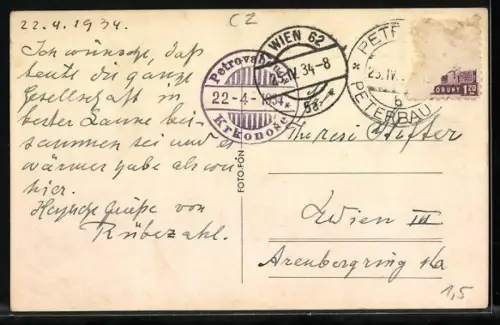 22.4.1934.
CZ
Ich wünsche, daß
heute die ganze
Gesellschaft in
bester Laune bei-
sammen sei und es
wärmer habe als wir
hier.
Herzliche Grüße von
Rübezahl.
Petrova b
22-4-1934
Krkonoše
WIEN 62
25.IV.34-8
* 5a *
PETE
* 23.IV.
b
PETERBAU
ORUNY 1.20
FOTO-FON
Theresi
Wien III
Arenbergring
1,5